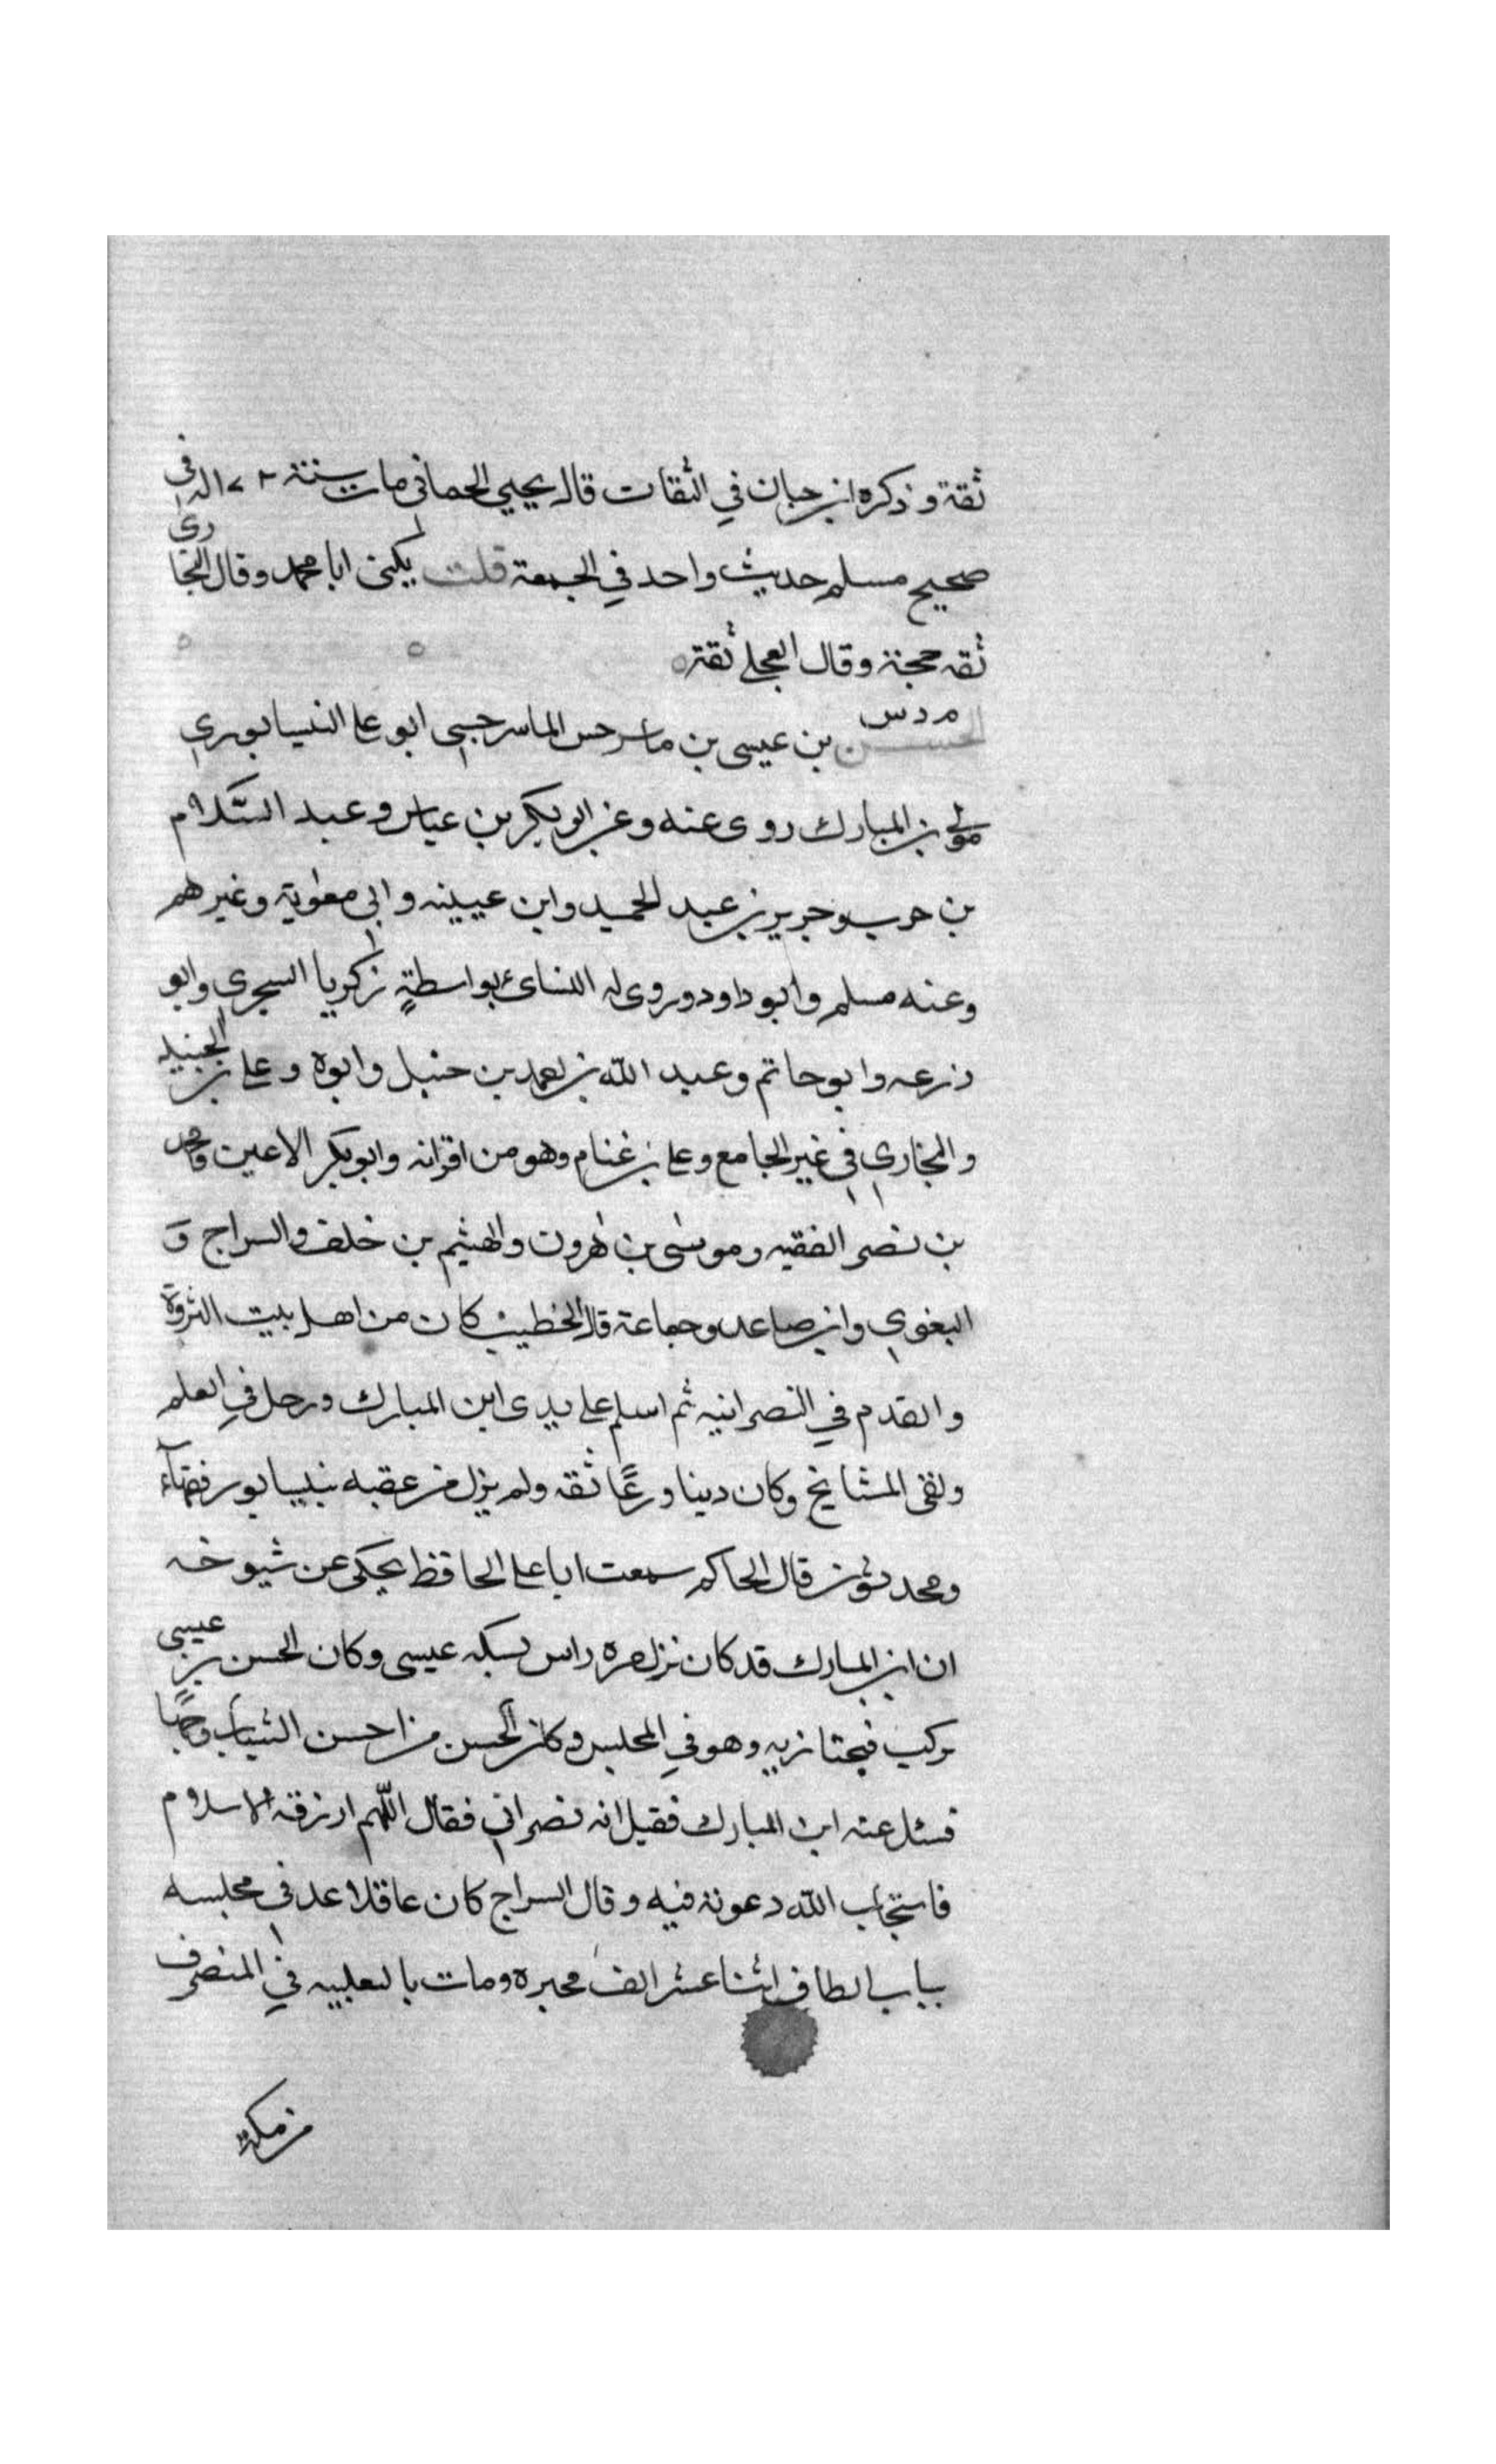 ثقة وذكره ابن حبان في الثقات قال يحيى الحماني مات سنة ١٧٢ له في
صحيح مسلم حديث واحد في الجمعة قلت يكنى ابا محمد وقال البخاري
ثقه حجة وقال العجلي ثقة
م د س
الحسن بن عيسى بن ماسرجس الماسرجسي ابو علي النيسابوري
مولى بن المبارك روى عنه وعن ابو بكر بن عياش وعبد السّلام
بن حرب وجرير بن عبد الحميد وابن عيينه وابي معٰوية وغيرهم
وعنه مسلم وابو داود وروى له النسائ بواسطةٍ زكريا السجزي وابو
زرعه وابو حاتم وعبد الله بن احمد بن حنبل وابوه وعلي بن الجنيد
والبخاري في غير الجامع وعلي بن غنام وهو من اقرانه وابو بكر الاعين ومحمد
بن نصر الفقيه وموسى بن هٰرون والهيثم بن خلف والسراج و
البغوي وابن صاعد وجماعة قال الخطيب كان من اهل بيت الثروة
والقدم في النصرانيه ثم اسلم على يدى ابن المبارك ورحل في العلم
ولقى المشايخ وكان دينا ورعًا ثقه ولم يزل من عقبه بنيسابور فقهآء
ومحدثون قال الحاكم سمعت ابا علي الحافظ يحكى عن شيوخه
ان ابن المبارك قد كان نزل مره راس سكه عيسى وكان الحسن بن عيسى
يركب فيجتاز به وهو في المجلس وكان الحسن من احسن الشباب وجهًا
فسئل عنه ابن المبارك فقيل انه نصراني فقال اللّهم ارزقه الاسلام
فاستجاب الله دعوته فيه وقال السراج كان عاقلا عد في مجلسه
بباب الطاق اثنا عشر الف محبره ومات بالثعلبيه في المنصرف
من مكة